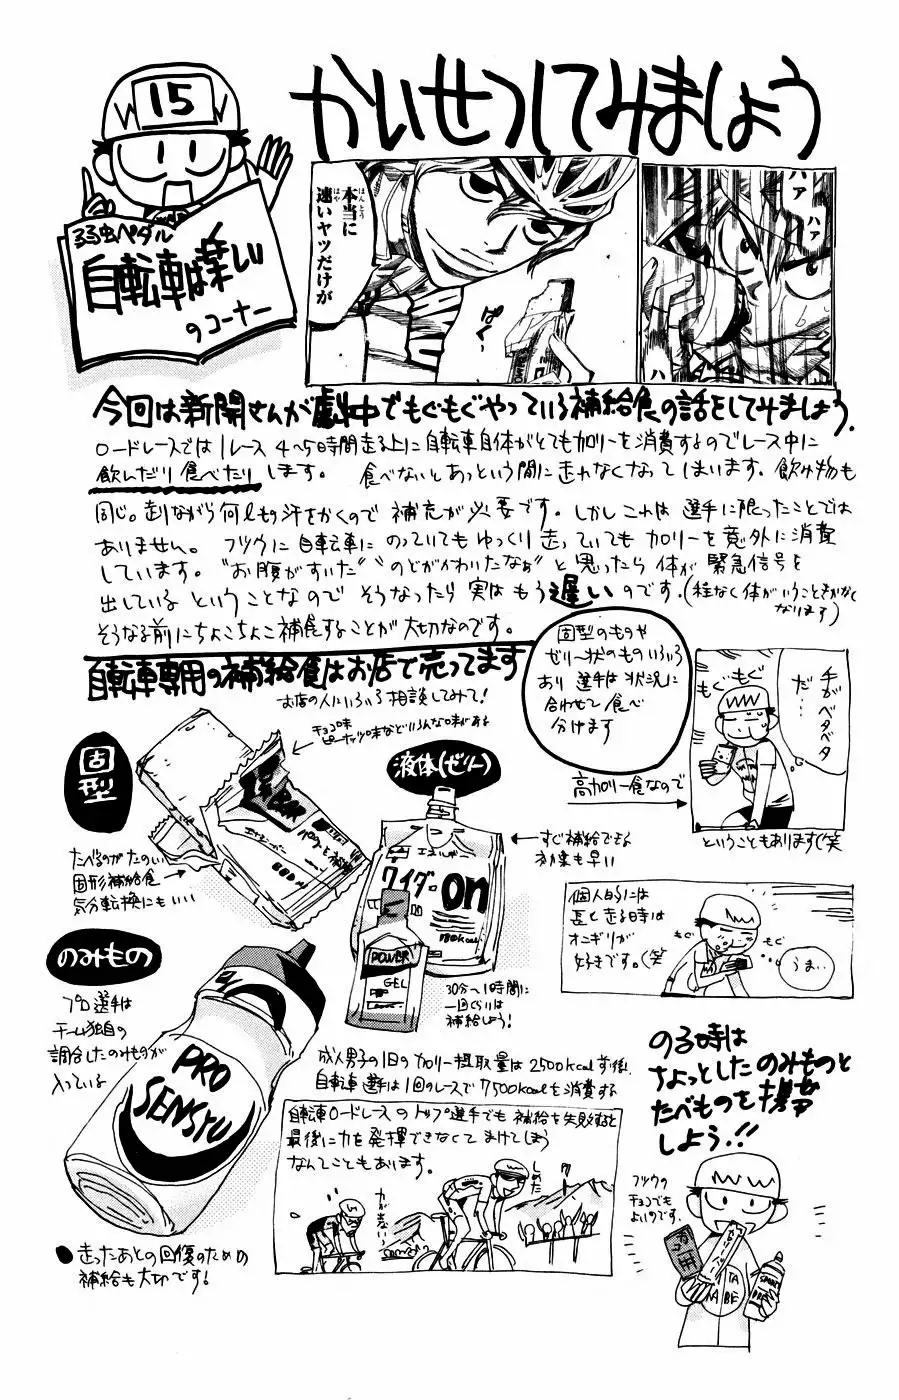 かいせつしてみましょう
15
弱虫ペダル
自転車は楽しい
のコーナー
本当に
ほんとう
速いヤツだけが
はや
ぱく
ハァ
ハァ
ハァ
今回は新開さんが劇中でもぐもぐやっている補給食の話をしてみましょう。
ロードレースでは1レース4〜5時間走る上に自転車自体がとてもカロリーを消費するのでレース中に
飲んだり食べたりします。 食べないとあっという間に走れなくなってしまいます。飲み物も
同じ。走りながら何ℓもの汗をかくので 補充が必要です。しかしこれは選手に限ったことでは
ありません。 フツウに自転車にのっていてもゆっくり走っていてもカロリーを意外に消費
しています。"お腹がすいた" "のどがかわいたなぁ"と思ったら体が緊急信号を
出しているということなのでそうなったら実はもう遅いのです。(程なく体がいうことをきかなく
なります)
そうなる前にちょこちょこ補食することが大切なのです。
自転車専用の補給食はお店で売ってます
お店の人にいろいろ相談してみて!
固型のものや
ゼリー状のものいろいろ
あり 選手は状況に
合わせて食べ
分けます
固型
チョコ味
ピーナッツ味などいろんな味がある
BAR
たべるのがたのしい
固形補給食
気分転換にもいい
液体(ゼリー)
エネルギー
ワイダーon
180kcal
POWER
GEL
すぐ補給できる
効果も早い
30分〜1時間に
一回くらいは
補給しよう!
高カロリー食なので
もぐもぐ
手がベタベタ
だ…
ということもあります(笑
個人的には
長く走る時は
オニギリが
好きです。(笑
もぐ
もぐ
うま…
のみもの
プロ選手は
チーム独自の
調合したのみものが
入っている
PRO
SENSYU
成人男子の1日のカロリー摂取量は2500kcal前後
自転車選手は1回のレースで7500kcalを消費する
自転車ロードレースのトップ選手でも補給を失敗すると
最後に力を発揮できなくてまけてしまう
なんてこともあります。
力が出ない
しめた
●走ったあとの回復のための
補給も大切です!
のる時は
ちょっとしたのみものと
たべものを携帯
しよう!!
フツウの
チョコでも
よいのです。
TA
NA BE